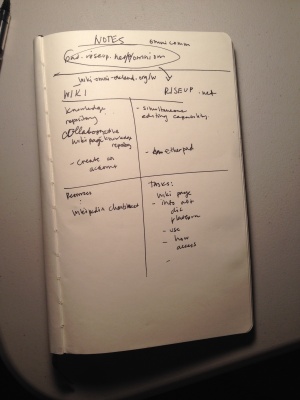 NOTES
omni comm
pad.riseup.net/p/omninom
wiki.omni-oakland.org/w
WIKI
RISEUP.net
Knowledge
repository
collaborative
wiki page knowledge
repository
- create an
account
- simultaneous
editing capability
- etherpad
Resources
:
wikipedia cheatsheet
TASKS:
wiki page
- info abt
platform
- use
- how
access
-